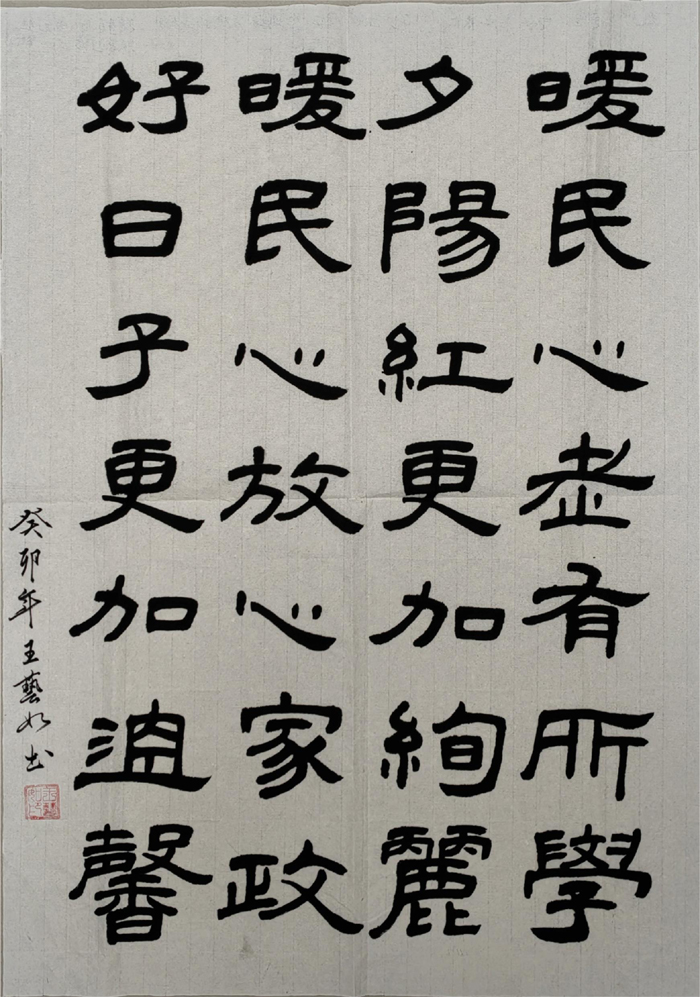 暖民心老有所學
夕陽紅更加絢麗
暖民心放心家政
好日子更加温馨
癸卯年王藝如书